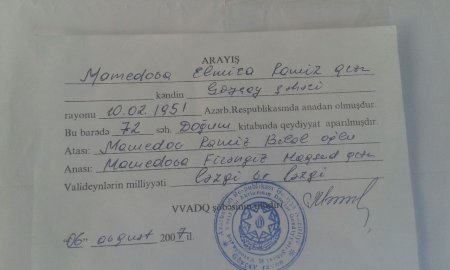 ARAYIŞ
Mamedova Elmira Ramiz qızı
kəndin Göyçay şəhəri
rayonu 10.02.1951 Azərb.Respublikasında anadan olmuşdur.
Bu barədə 72 səh. Doğum kitabında qeydiyyat aparılmışdır.
Atası: Mamedov Ramiz Bilal oğlu
Anası: Mamedova Firəngiz Məqsud qızı
Valideynlərin milliyyəti ləzgi və ləzgi
VVADQ şöbəsinin müdiri
"06" avgust 2007 il.